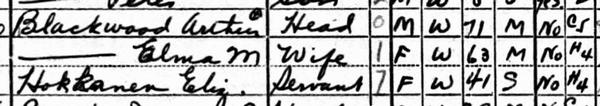 Blackwood Arthur Head 0 M W 71 M No C5
—— Elma M Wife 1 F W 63 M No H4
Hokkanen Eliz. Servant 7 F W 41 S No H4